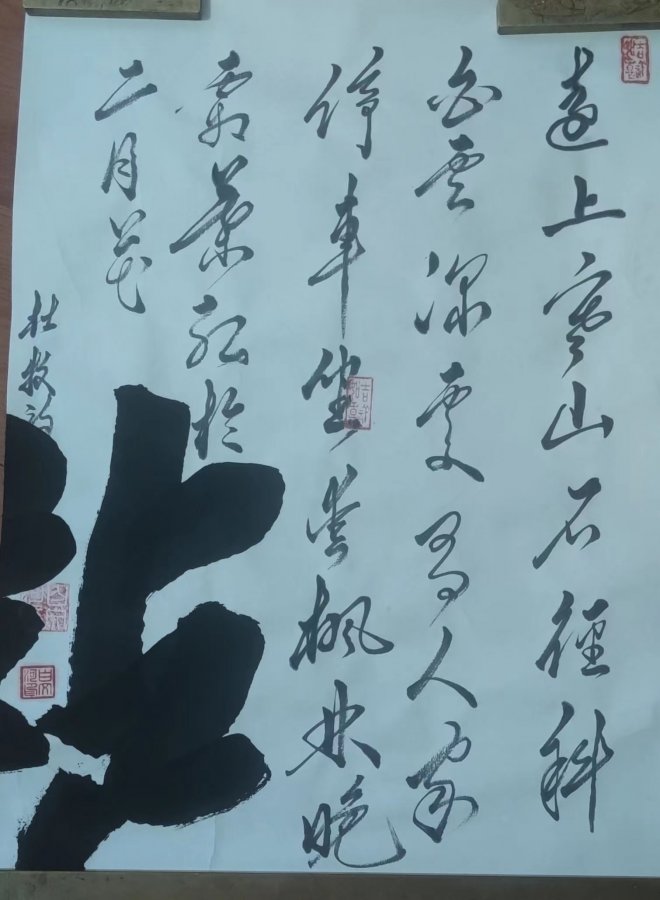 遠上寒山石徑斜
白雲深處有人家
停車坐愛楓林晚
霜葉紅於
二月花
杜牧詩